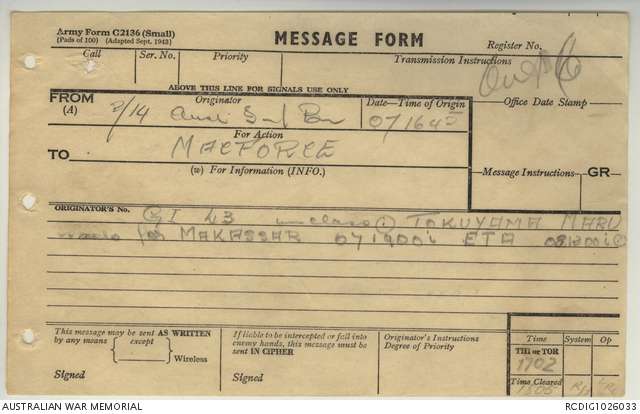 Army Form C2136 (Small)
(Pads of 100) (Adapted Sept. 1943)
MESSAGE FORM
Register No.
Call
Ser. No.
Priority
Transmission Instructions
ABOVE THIS LINE FOR SIGNALS USE ONLY
FROM
(A)
Originator
Date—Time of Origin
Office Date Stamp
2/14 Aust Inf Bn
071645
For Action
TO
MACFORCE
(w) For Information (INFO.)
Message Instructions
GR
ORIGINATOR'S No.
GI 43 unclass TOKUYAMA MARU
for MAKASSAR 071900I ETA 081200I
This message may be sent AS WRITTEN
by any means
except
Wireless
Signed
If liable to be intercepted or fall into
enemy hands, this message must be
sent IN CIPHER
Signed
Originator's Instructions
Degree of Priority
Time
System
Op
THI or TOR
1702
Time Cleared
AUSTRALIAN WAR MEMORIAL
RCDIG1026033